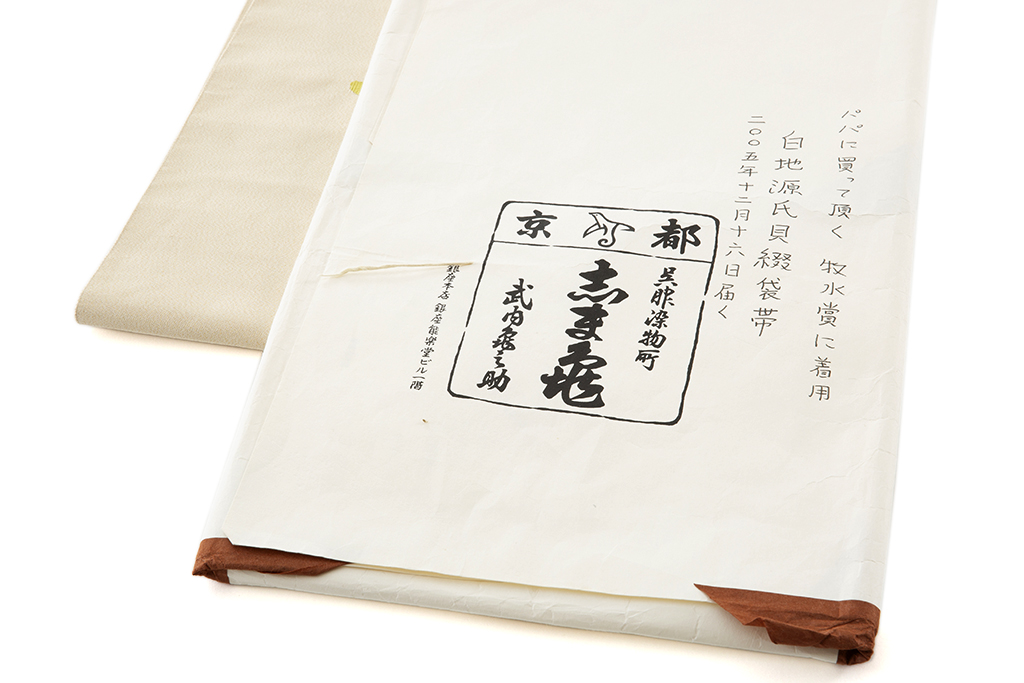 パパに買って頂く 牧水賞に着用
白地源氏貝綴袋帯
二〇〇五年十二月十六日届く
京都
呉服染物所
志ま亀
武内亀之助
銀座本店 銀座能楽堂ビル一階